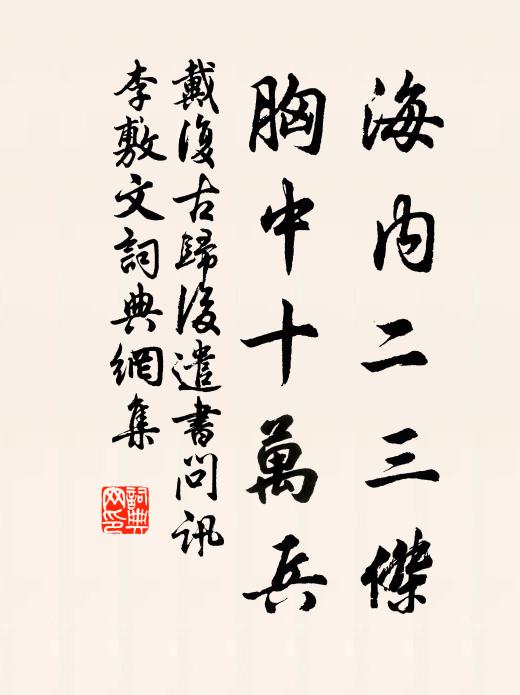 海内二三傑
胸中十萬兵
戴復古歸後遣書問訊
李敷文詞典網集
詞典網印